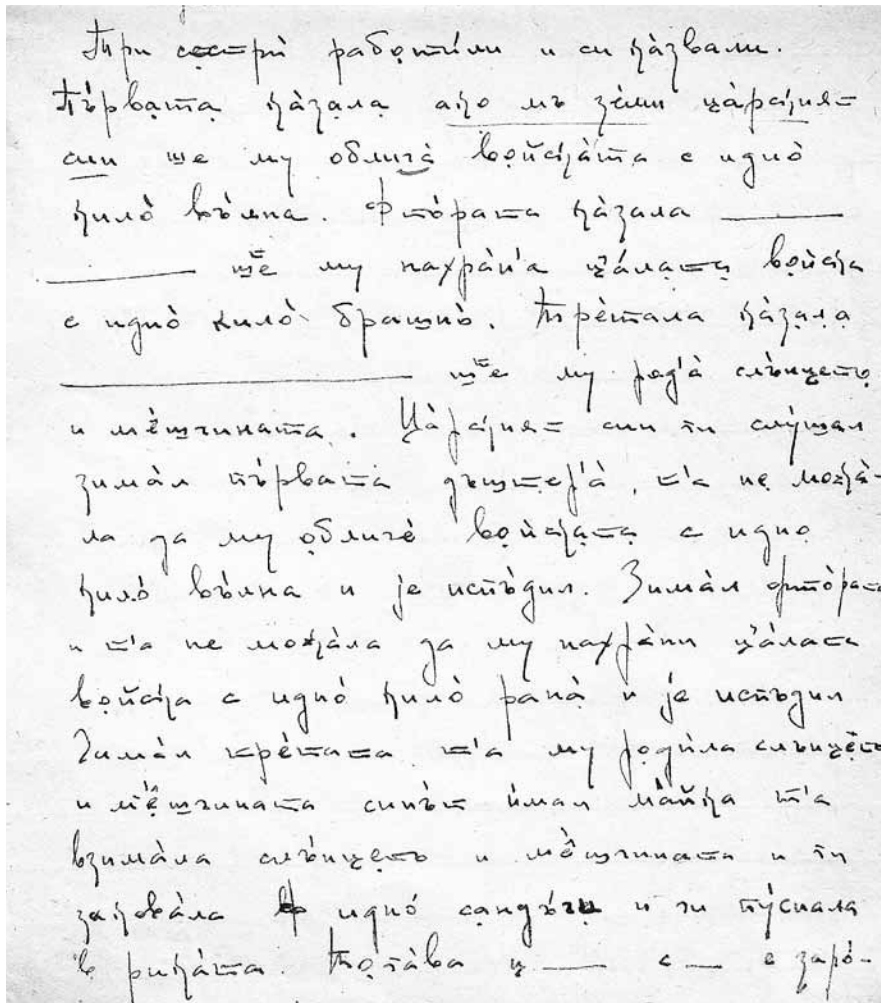 Три сестри́ рабо́тили и си ка́звали.
Пъ́рвата ка́зала ако мъ зе́ми ца́рският
син ше му облича̀ войска́та с идно̀
кило̀ въ̀лна. Фто̀рата ка̀зала ———
——— ште му нахра̀н'а ца́лата войска
с идно̀ кило̀ брашно̀. Трѐтала ка̀зала
——— ште му род'а̀ слъ̀нцето
и мѐшчината. Ца̀рският син ги слу́шал
зима̀л пъ̀рвата дъштер'а̀, т'а не можа̀-
ла да му обличѐ войската с идно
кило̀ въ̀лна и је испъ̀дил. Зима̀л фто̀рата
и т'а не можа̀ла да му нахра̀ни ца̀лата
войска с идно̀ кило̀ рана̀ и је испъдил
Зима̀л трѐтата т'а му роди́ла слънцѐто
и мѐшчината синъ̀т и́мал ма̀йка т'а
взима̀ла слъ̀нцето и мѐшчината и ги
закова̀ла в идно̀ сандъ̀че и ги пу́снала
в рика̀та. Тога̀ва ц— с— е заро̀-